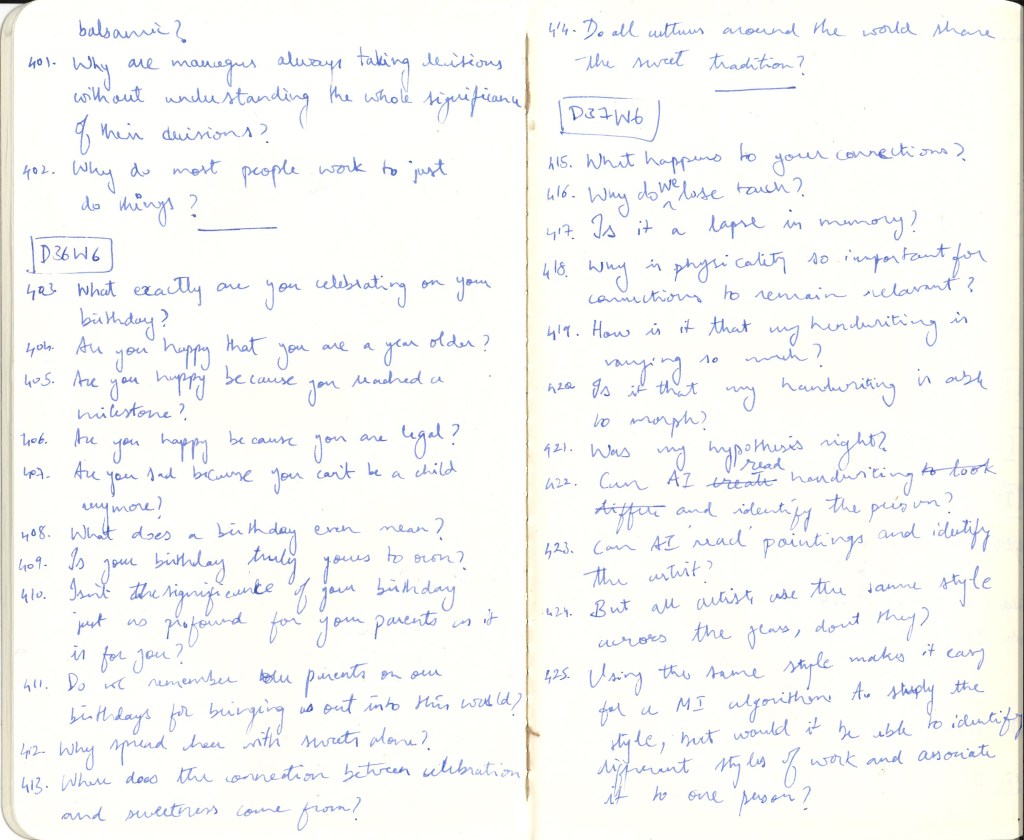 balsamic?
401. Why are managers always taking decisions
without understanding the whole significance
of their decisions?
402. Why do most people work to just
do things?
D36W6
403. What exactly are you celebrating on your
birthday?
404. Are you happy that you are a year older?
405. Are you happy because you reached a
milestone?
406. Are you happy because you are legal?
407. Are you sad because you can't be a child
anymore?
408. What does a birthday even mean?
409. Is your birthday truly yours to own?
410. Isn't the significance of your birthday
just as profound for your parents as it
is for you?
411. Do we remember our parents on our
birthdays for bringing us out into this world?
412. Why spread cheer with sweets alone?
413. Where does the connection between celebration
and sweetness come from?
414. Do all cultures around the world share
the sweet tradition?
D37W6
415. What happens to your connections?
416. Why do we lose touch?
417. Is it a lapse in memory?
418. Why is physicality so important for
connections to remain relavant?
419. How is it that my handwriting is
varying so much?
420. Is it that my handwriting is able
to morph?
421. Was my hypothesis right?
422. Can AI create read handwriting to look
differ and identify the person?
423. Can AI 'read' paintings and identify
the artist?
424. But all artists use the same style
across the years, dont they?
425. Using the same style makes it easy
for a ML algorithm to study the
style, but would it be able to identify
different styles of work and associate
it to one person?